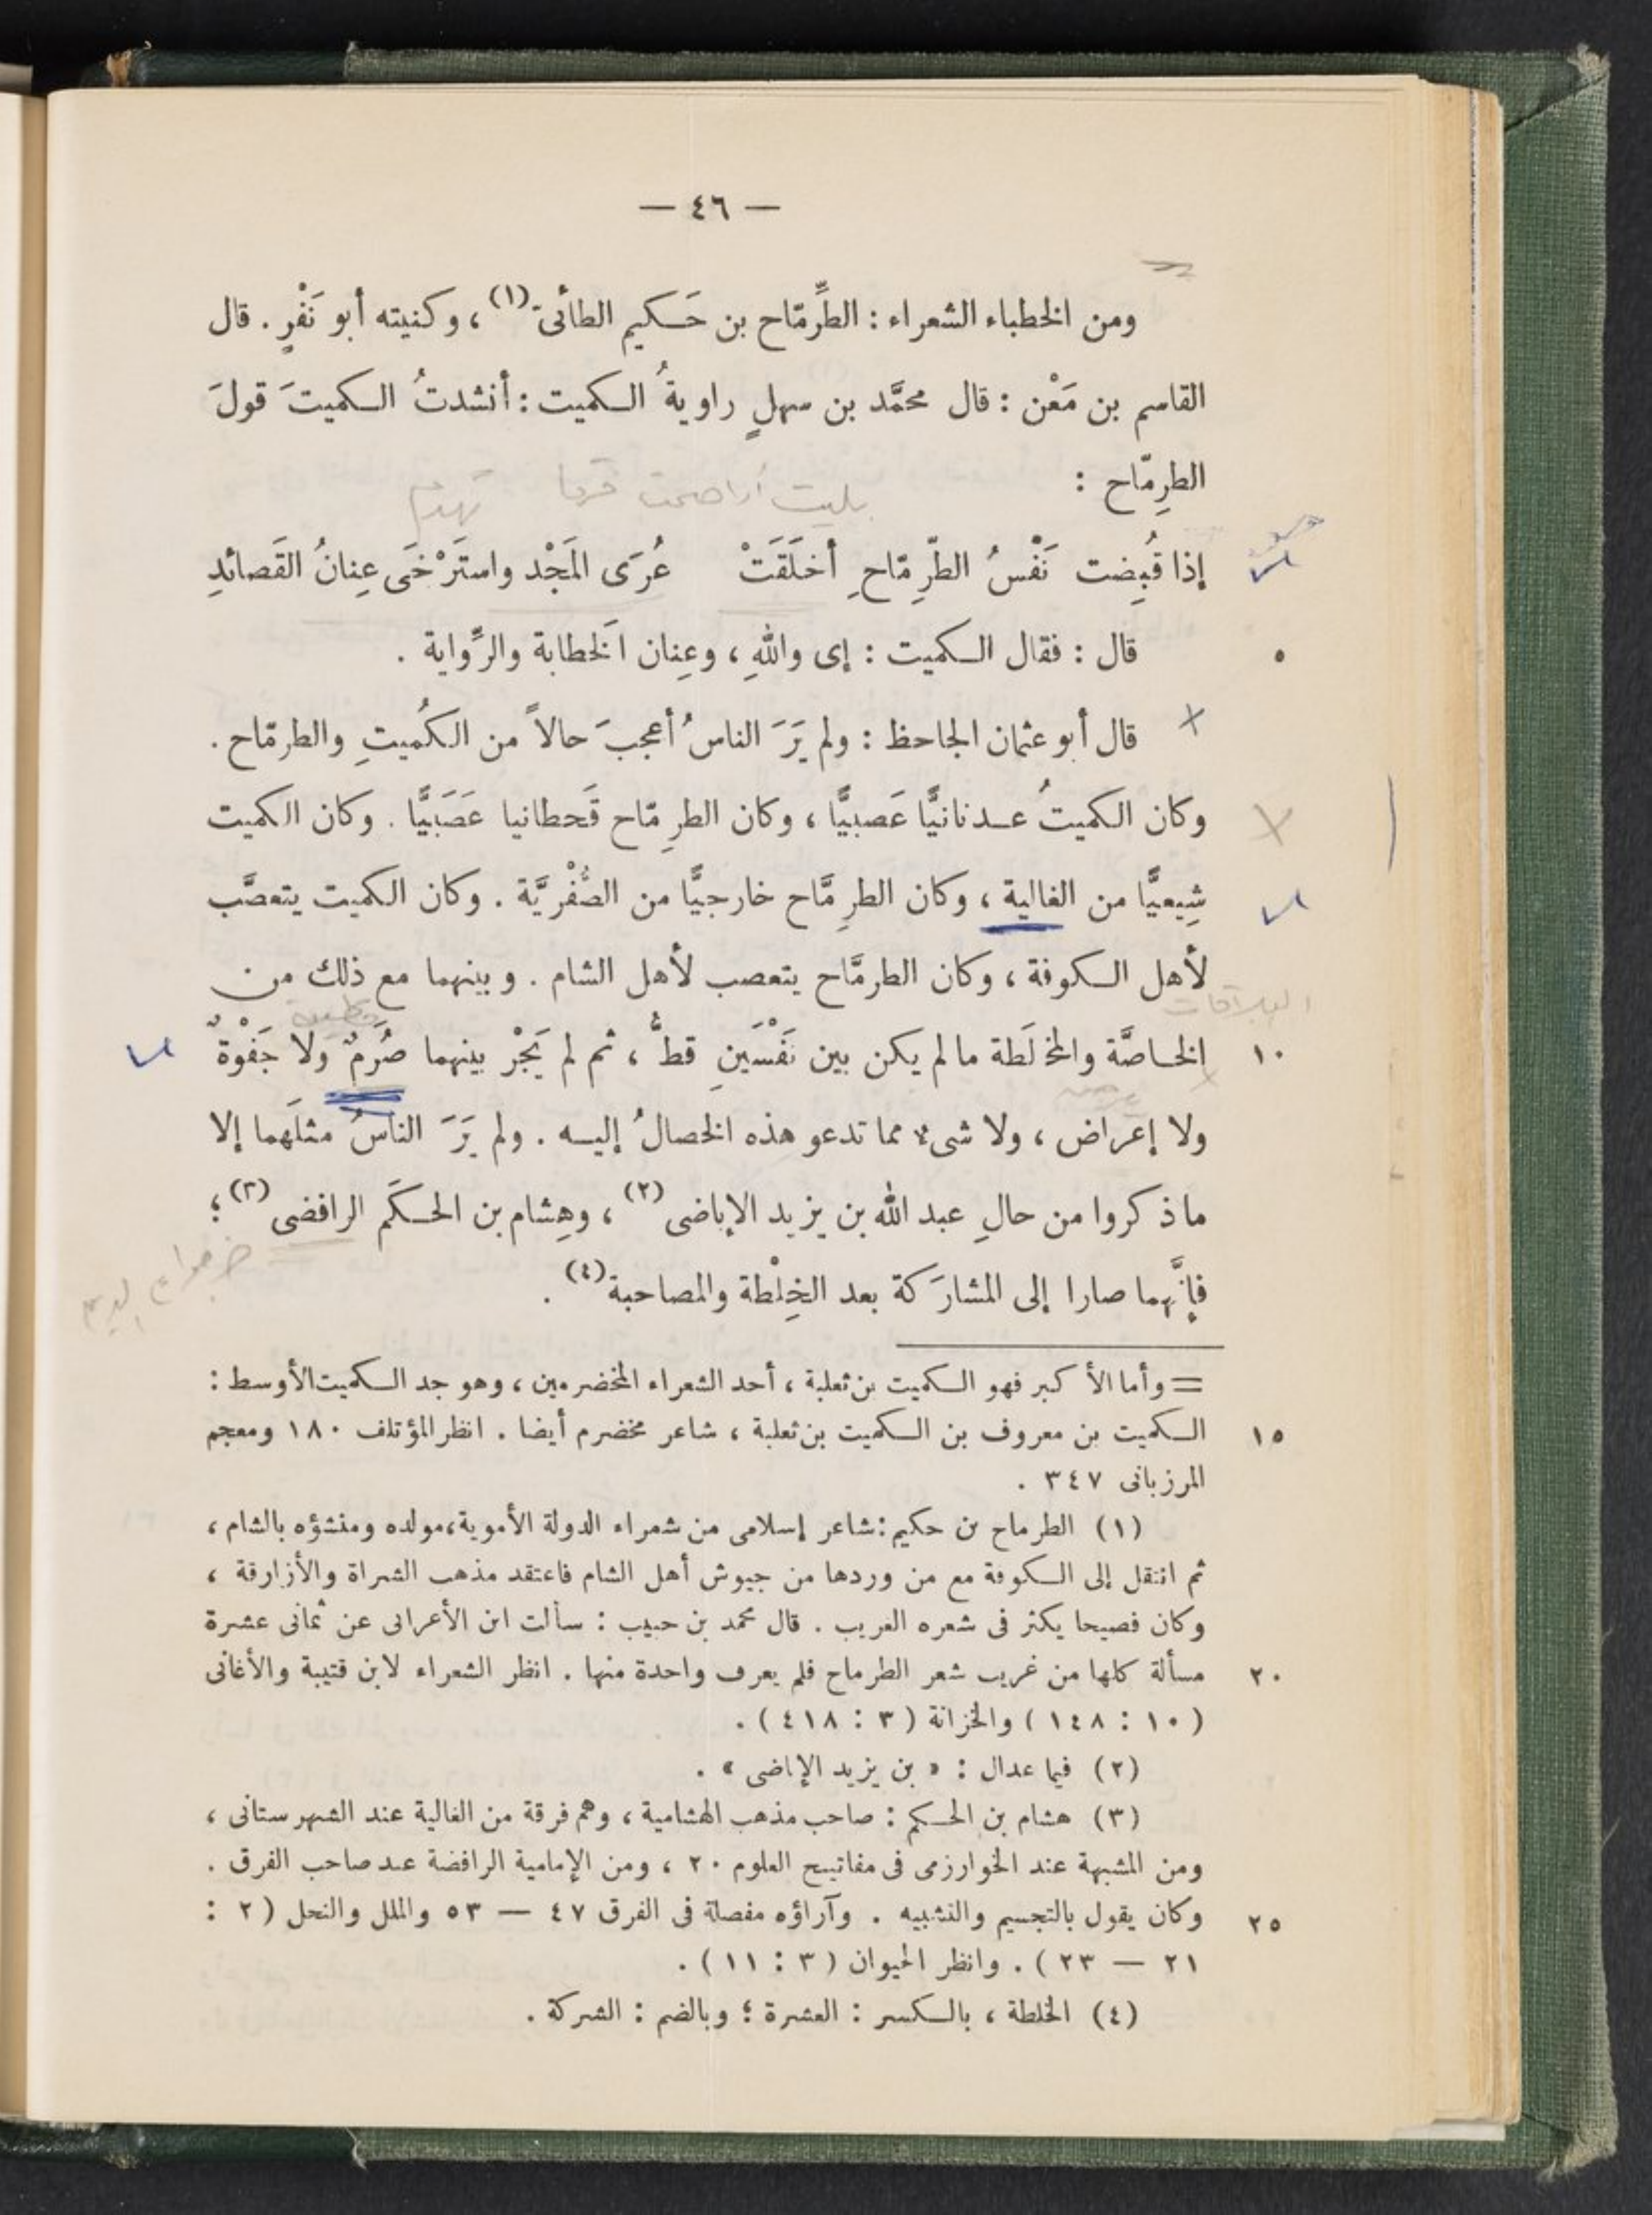 — ٤٦ —
ومن الخطباء الشعراء : الطِّرِمّاح بن حَكيم الطائىّ (١) ، وكنيته أبو نَفْرٍ . قال
القاسم بن مَعْن : قال محمَّد بن سهلٍ راويةُ الكميت : أنشدتُ الكميتَ قولَ
الطرِمّاح :
إذا قُبِضت نَفْسُ الطّرِمّاحِ أخلَقَتْ عُرَى المَجْد واستَرْخَى عِنانُ القَصائدِ
٥ قال : فقال الكميت : إى واللهِ ، وعِنان الخَطابة والرِّواية .
قال أبو عثمان الجاحظ : ولم يَرَ الناسُ أعجبَ حالاً من الكُميتِ والطرمّاح .
وكان الكميتُ عدنانيًّا عَصبيًّا ، وكان الطرِمّاح قَحطانيا عَصَبيًّا . وكان الكميت
شِيعيًّا من الغالية ، وكان الطرِمَّاح خارجيًّا من الصُّفْريَّة . وكان الكميت يتعصَّب
لأهل الكوفة ، وكان الطرمَّاح يتعصب لأهل الشام . وبينهما مع ذلك من
١٠ الخاصَّة والمخالَطة مالم يكن بين نَفْسَينِ قطُّ ، ثم لم يَجْرِ بينهما صُرْمٌ ولا جَفْوةٌ
ولا إعراض ، ولا شىء مما تدعو هذه الخصالُ إليه . ولم يَرَ الناسُ مثلَهما إلا
ماذكروا من حالِ عبد الله بن يزيد الإباضى (٢) ، وهِشام بن الحكَم الرافضى (٣) ؛
فإنَّهما صارا إلى المشارَكة بعد الخِلْطة والمصاحبة (٤) .
= وأما الأكبر فهو الكميت بن ثعلبة ، أحد الشعراء المخضرمين ، وهو جد الكميت الأوسط :
١٥ الكميت بن معروف بن الكميت بن ثعلبة ، شاعر مخضرم أيضا . انظر المؤتلف ١٨٠ ومعجم
المرزبانى ٣٤٧ .
(١) الطرماح بن حكيم : شاعر إسلامى من شعراء الدولة الأموية ، مولده ومنشؤه بالشام ،
ثم انتقل إلى الكوفة مع من وردها من جيوش أهل الشام فاعتقد مذهب الشراة والأزارقة ،
وكان فصيحا يكثر فى شعره الغريب . قال محمد بن حبيب : سألت ابن الأعرابى عن ثمانى عشرة
٢٠ مسألة كلها من غريب شعر الطرماح فلم يعرف واحدة منها . انظر الشعراء لابن قتيبة والأغانى
( ١٠ : ١٤٨ ) والخزانة ( ٣ : ٤١٨ ) .
(٢) فيما عدا ل : « بن يزيد الإباضى » .
(٣) هشام بن الحكم : صاحب مذهب الهشامية ، وهم فرقة من الغالية عند الشهرستانى ،
ومن المشبهة عند الخوارزمى فى مفاتيح العلوم ٢٠ ، ومن الإمامية الرافضة عند صاحب الفرق .
٢٥ وكان يقول بالتجسيم والتشبيه . وآراؤه مفصلة فى الفرق ٤٧ — ٥٣ والملل والنحل ( ٢ :
٢١ — ٢٣ ) . وانظر الحيوان ( ٣ : ١١ ) .
(٤) الخلطة ، بالكسر : العشرة ؛ وبالضم : الشركة .